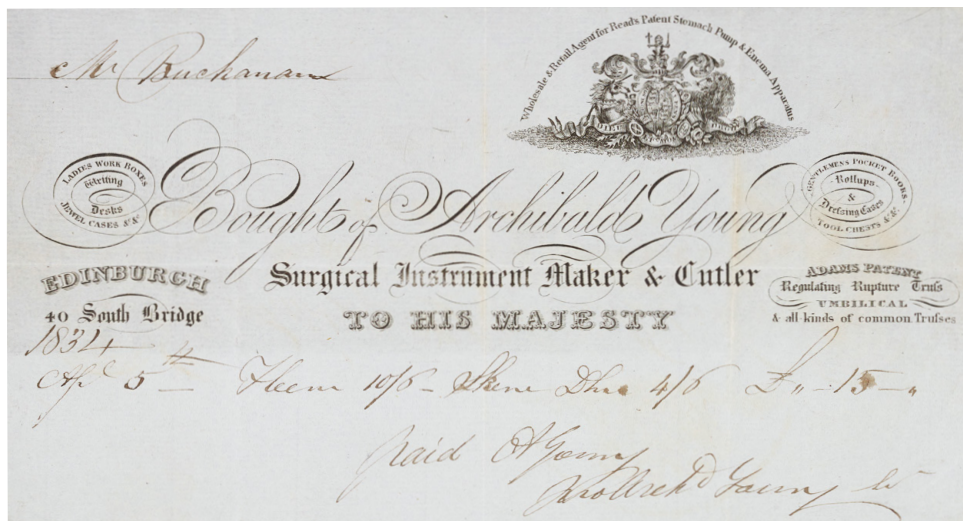 Mr Buchanan
Wholesale & Retail Agent for Reads Patent Stomach Pump & Enema Apparatus
DIEU ET MON DROIT
LADIES WORK BOXES
Writing
Desks
JEWEL CASES &c &c
Bought of Archibald Young
GENTLEMENS POCKET BOOKS.
Rollups
&
Dressing Cases
TOOL CHESTS &c &c
EDINBURGH
40 South Bridge
Surgical Instrument Maker & Cutler
TO HIS MAJESTY
ADAMS PATENT
Regulating Rupture Truss
UMBILICAL
& all kinds of common Trusses
1834
Apl 5th Fleem 10/6 – Skene Dhu 4/6 £ " – 15 – "
paid A Young
Young